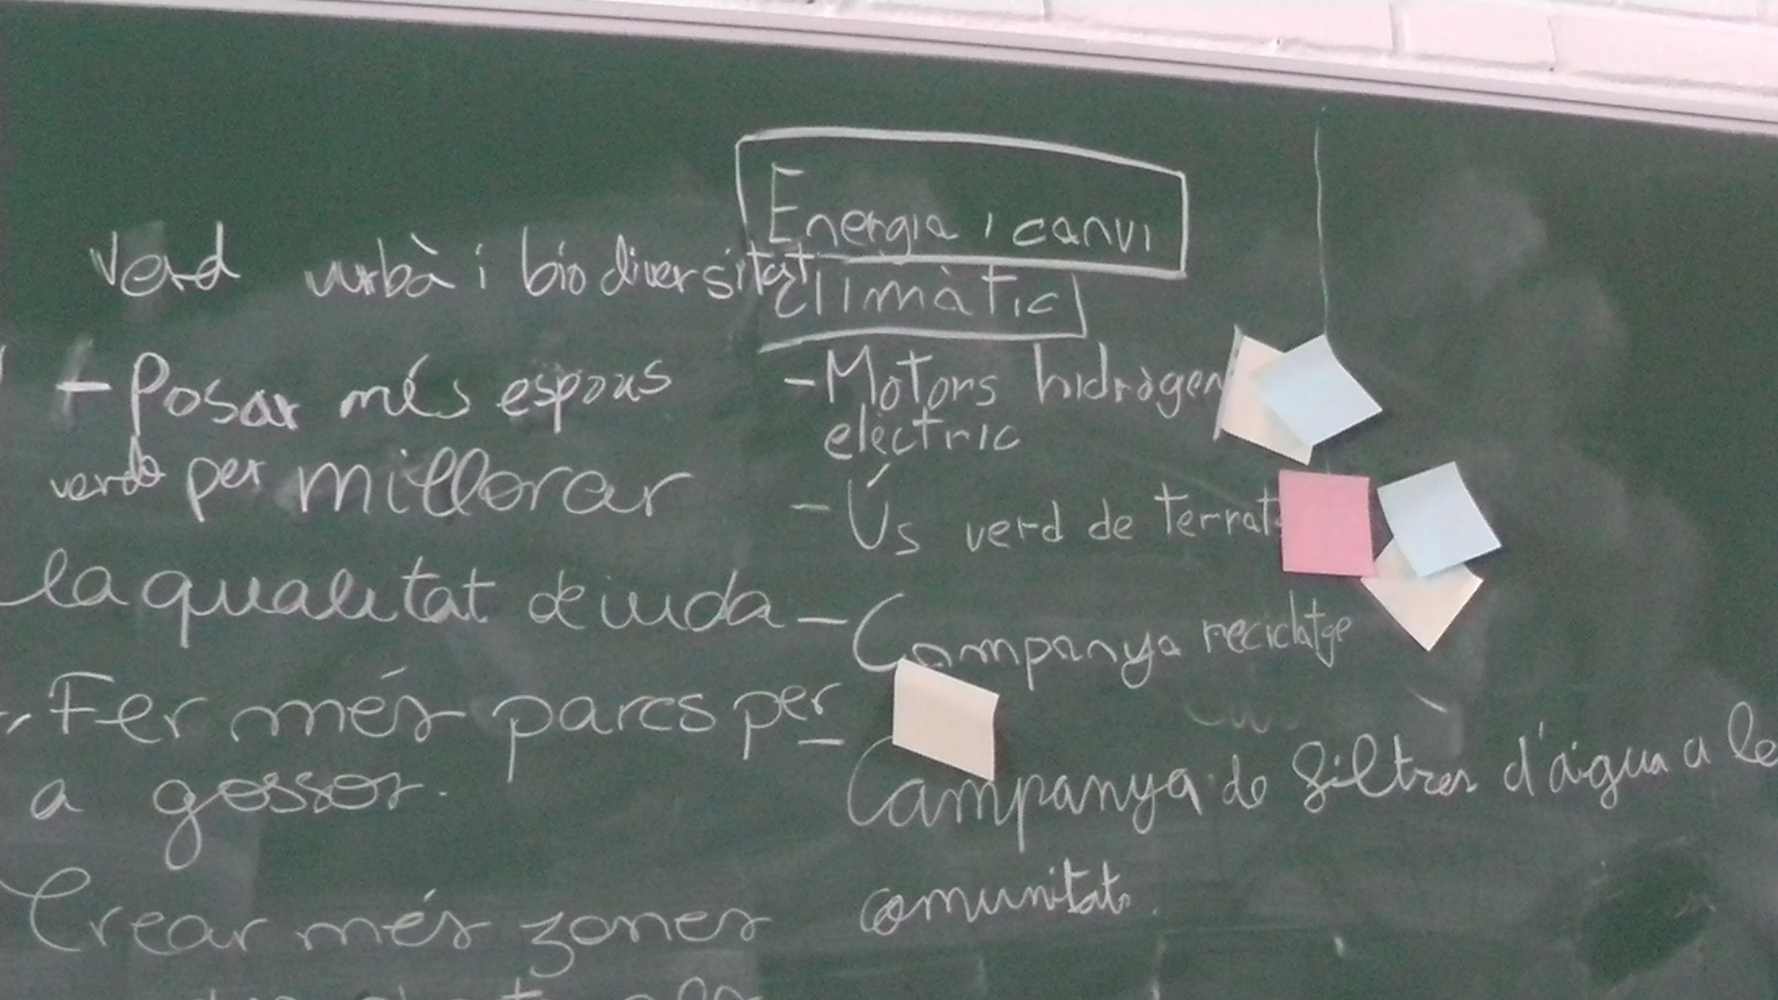 Verd urbà i biodiversitat
- Posar més espais
verds per millorar
la qualitat de vida
- Fer més parcs per
a gossos.
Crear més zones
Energia i canvi
climàtic
- Motors hidrògen
elèctric
- Ús verd de terrat
- Campanya reciclatge
- Campanya de filtres d'aigua a le
comunitats.